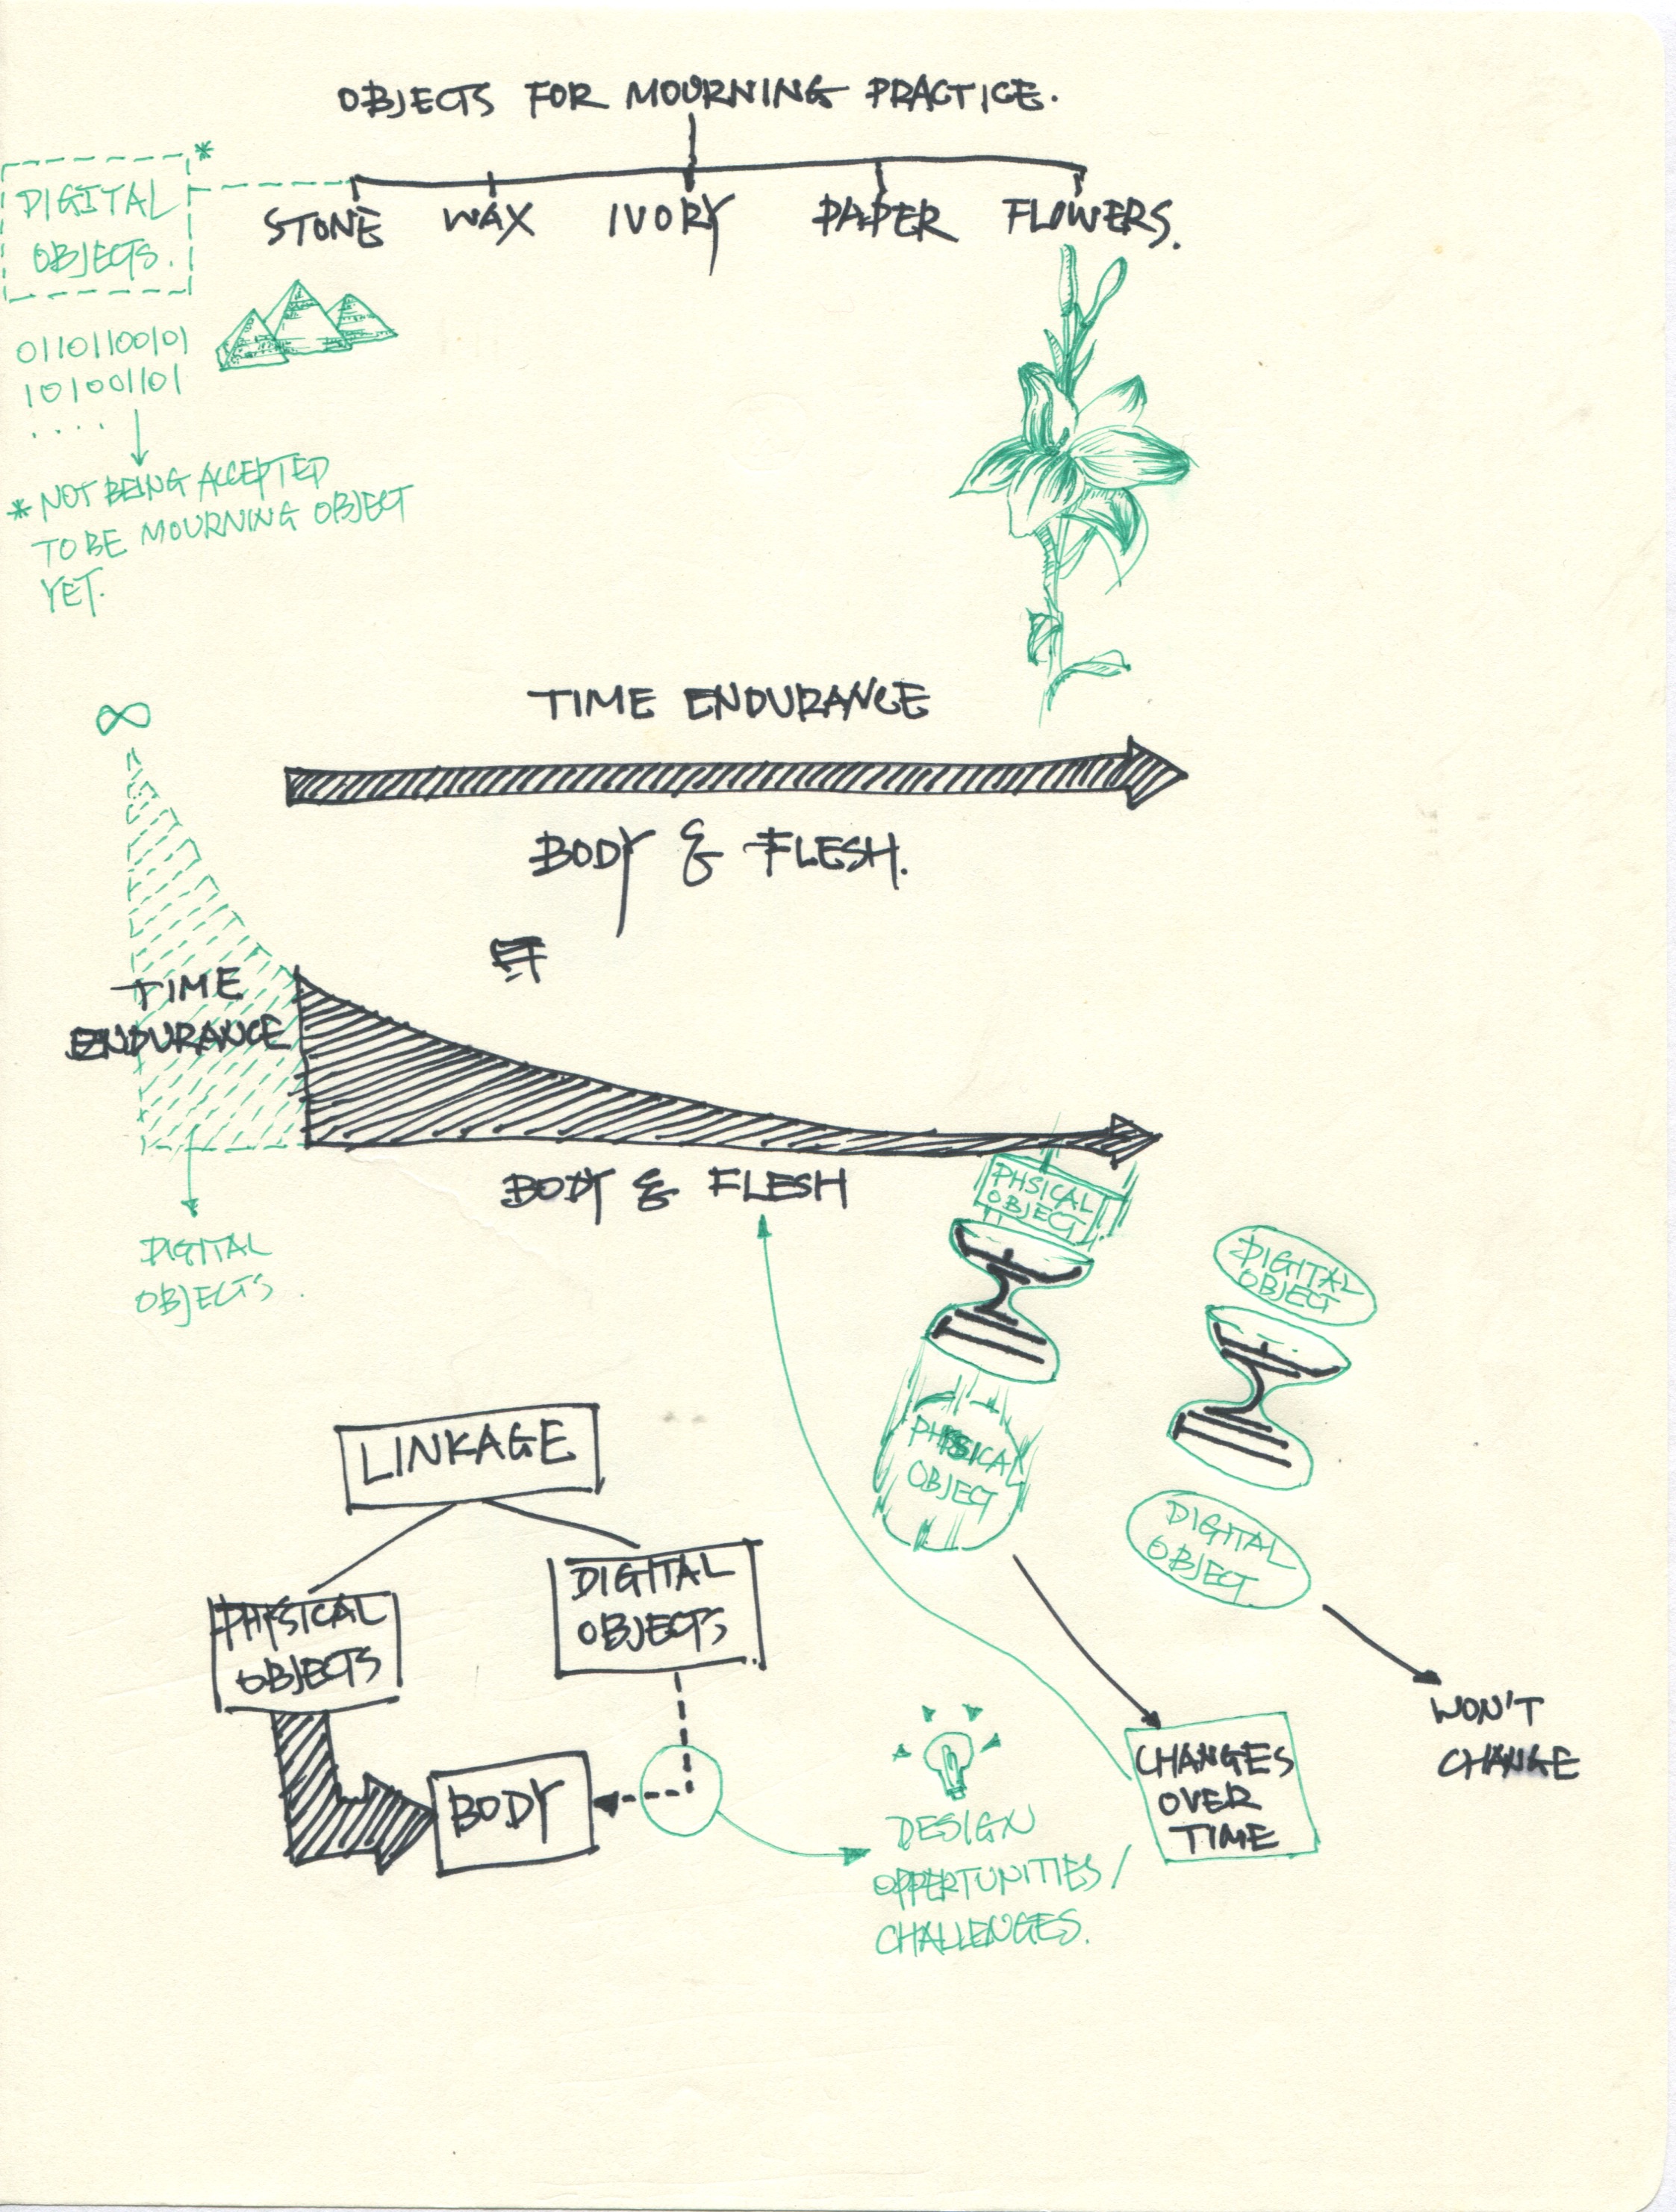 OBJECTS FOR MOURNING PRACTICE.
*
DIGITAL
OBJECTS.
STONE WAX IVORY PAPER FLOWERS.
01101100101
101001101
....
* NOT BEING ACCEPTED
TO BE MOURNING OBJECT
YET.
∞
TIME ENDURANCE
BODY & FLESH.
TIME
ENDURANCE
BODY & FLESH
DIGITAL
OBJECTS.
PHSICAL
OBJECT
PHYSICAL
OBJECT
DIGITAL
OBJECT
DIGITAL
OBJECT
LINKAGE
PHYSICAL
OBJECTS
DIGITAL
OBJECTS
BODY
DESIGN
OPPERTUNITIES/
CHALLENGES.
CHANGES
OVER
TIME
WON'T
CHANGE